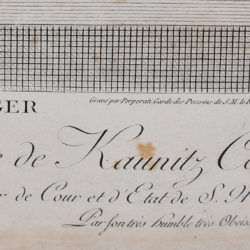 Gravé par Porporati Garde des Desseins de S. M. le R
GER
e de Kaunitz C
r de Cour et d'Etat de S.
Par son très humble très Obeis